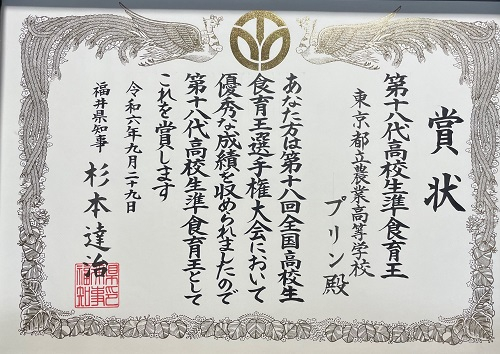 賞状
第十八代高校生準食育王
東京都立農業高等学校
プリン殿
あなた方は第十八回全国高校生
食育王選手権大会において
優秀な成績を収められましたので
第十八代高校生準食育王として
これを賞します
令和六年九月二十九日
福井県知事 杉本達治